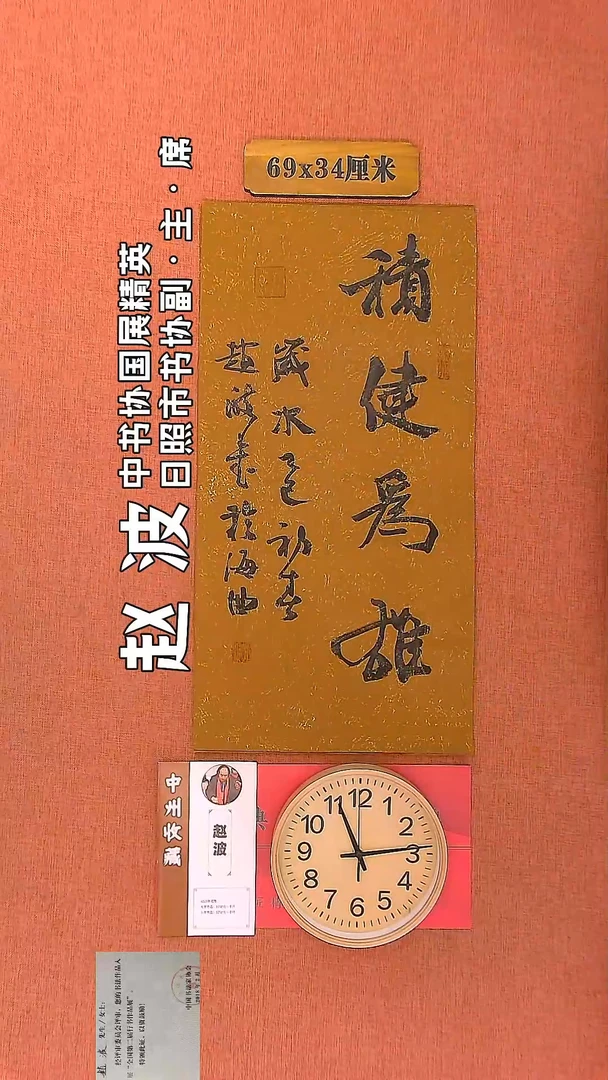 69x34厘米
積健為雄
歲次乙巳初春
趙波書於海曲
中书协国展精英
日照市书协副·主·席
赵波
赵波
12
1
2
3
4
5
6
7
8
9
10
11
先生/女士：
经评审委员会评审，您的书法作品入
展"全国第二届行书作品展"，
特颁此证，以资鼓励！
中国书法家协会